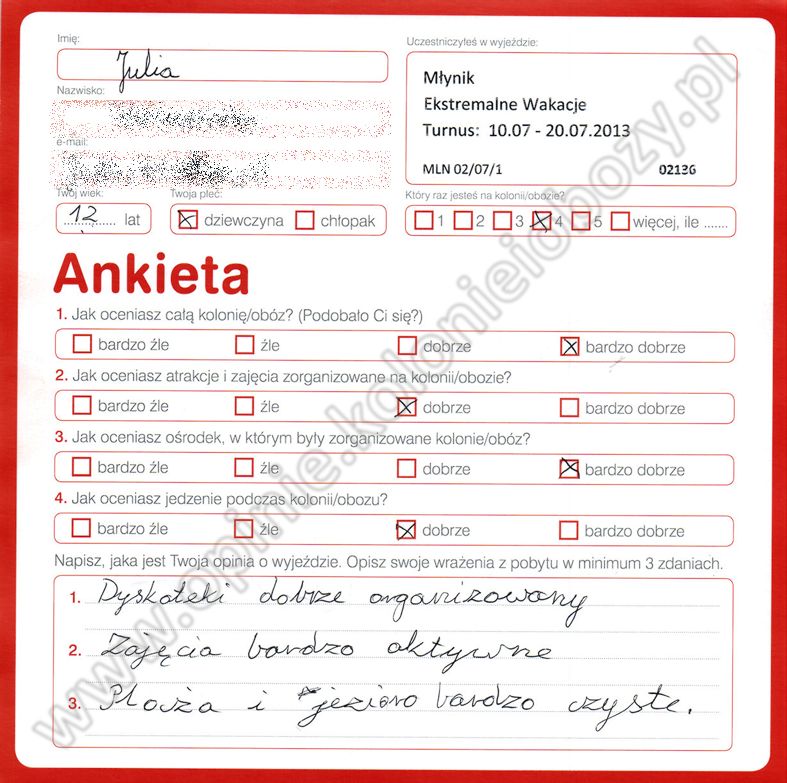 Imię:
Julia
Nazwisko:
e-mail:
Twój wiek:
12 lat
Twoja płeć:
dziewczyna chłopak
Uczestniczyłeś w wyjeździe:
Młynik
Ekstremalne Wakacje
Turnus: 10.07 - 20.07.2013
MLN 02/07/1 02136
Który raz jesteś na kolonii/obozie?
1 2 3 4 5 więcej, ile .......
Ankieta
1. Jak oceniasz całą kolonię/obóz? (Podobało Ci się?)
bardzo źle źle dobrze bardzo dobrze
2. Jak oceniasz atrakcje i zajęcia zorganizowane na kolonii/obozie?
bardzo źle źle dobrze bardzo dobrze
3. Jak oceniasz ośrodek, w którym były zorganizowane kolonie/obóz?
bardzo źle źle dobrze bardzo dobrze
4. Jak oceniasz jedzenie podczas kolonii/obozu?
bardzo źle źle dobrze bardzo dobrze
Napisz, jaka jest Twoja opinia o wyjeździe. Opisz swoje wrażenia z pobytu w minimum 3 zdaniach.
1. Dyskoteki dobrze organizowany
2. Zajęcia bardzo aktywne
3. Plaża i jezioro bardzo czyste.
www.opinie.kolonieiobozy.pl